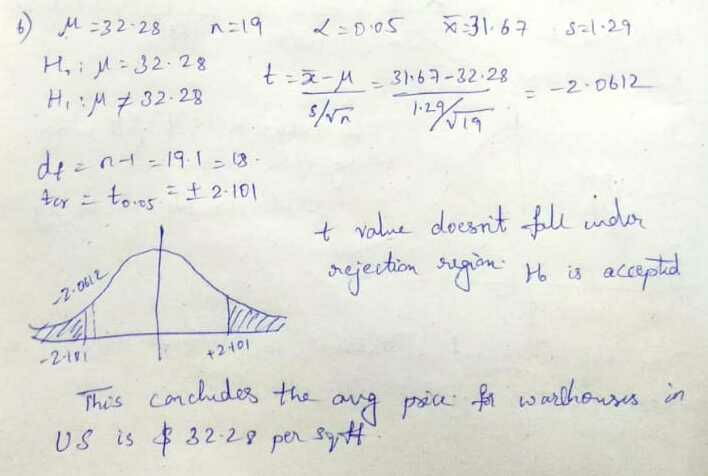 6) μ = 32.28 n = 19 α = 0.05 x̄ = 31.67 s = 1.29
H₀ : μ = 32.28
H₁ : μ ≠ 32.28
t = x̄ - μ / s/√n = 31.67 - 32.28 / 1.29/√19 = -2.0612
df = n-1 = 19.1 = 18.
tcr = t0.05 = ± 2.101
t value doesn't fall under
rejection region. H₀ is accepted
-2.0612
-2.101 +2.101
This concludes the avg price for warlhouses in
US is $ 32.28 per sq.ft.